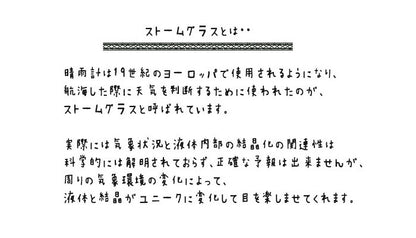 ストームグラスとは・・
晴雨計は19世紀のヨーロッパで使用されるようになり、
航海した際に天気を判断するために使われたのが、
ストームグラスと呼ばれています。
実際には気象状況と液体内部の結晶化の関連性は
科学的には解明されておらず、正確な予報は出来ませんが、
周りの気象環境の変化によって、
液体と結晶がユニークに変化して目を楽しませてくれます。